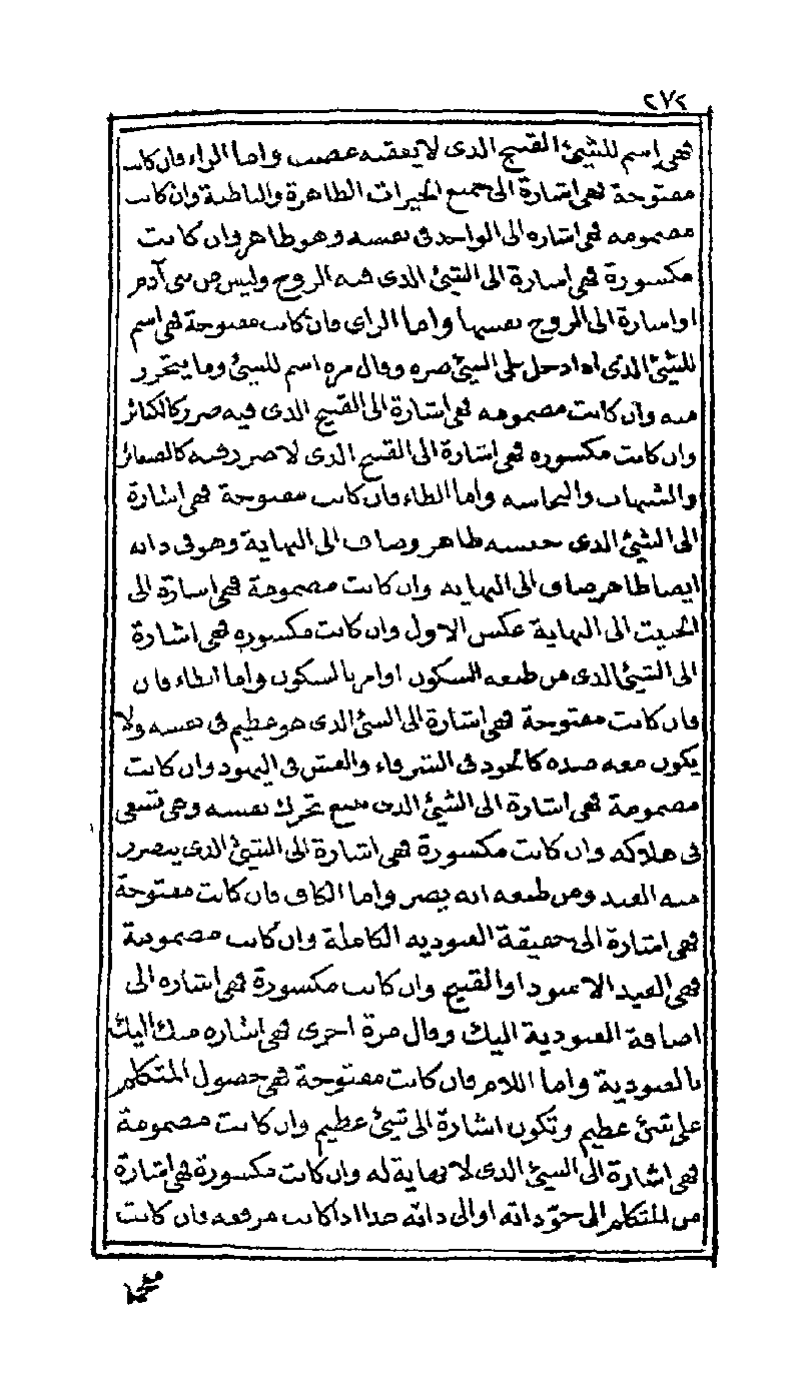 ٢٧٢
فهي اسم للشيئ القبيح الذى لا يعقبه غضب واما الراء فان كانت
مفتوحة فهي اشارة الى جميع الخيرات الظاهرة والباطنة وان كانت
مضمومه فهي اشاره الى الواحد فى نفسه وهو ظاهر وان كانت
مكسورة فهي اشارة الى الشيئ الذى فيه الروح وليس من بنى آدم
او اشارة الى الروح نفسها واما الزاى فان كانت مفتوحة فهي اسم
للشيئ الذى اذا دخل على الشيئ ضره وقال مره اسم للشيئ وما يتحرر
منه وان كانت مضمومه فهي اشارة الى القبيح الذى فيه ضرر كالكبائر
وان كانت مكسوره فهي اشارة الى القبيح الذى لا ضرر فيه كالصغائر
والشبهات والنجاسه واما الطاء فان كانت مفتوحة فهي اشارة
الى الشيئ الذى جنسه طاهر وصاف الى النهاية وهو فى ذاته
ايضا طاهر صاف الى النهايه وان كانت مضمومة فهي اشارة الى
الخبيث الى النهاية عكس الاول وان كانت مكسوره فهي اشارة
الى الشيئ الذى من طبعه السكون او امر بالسكون واما الظاء فان
فان كانت مفتوحة فهي اشارة الى الشيئ الذى هو عظيم فى نفسه ولا
يكون معه ضده كالجود فى الشرفاء والغش فى اليهود وان كانت
مضمومة فهي اشارة الى الشيئ الذى تحرك نفسه وهى تسعى
فى هلاكه وان كانت مكسورة فهي اشارة الى الشيئ الذى يتضرر
منه العبد ومن طبعه انه يضر واما الكاف فان كانت مفتوحة
فهي اشارة الى حقيقة العبوديه الكاملة وان كانت مضمومة
فهي العبد الاسود او القبيح وان كانت مكسورة فهي اشاره الى
اضافة العبودية اليك وقال مرة اخرى فهي اشاره منك اليك
بالعبودية واما اللام فان كانت مفتوحة فهي حصول المتكلم
على شئ عظيم وتكون اشارة الى شيئ عظيم وان كانت مضمومة
فهي اشارة الى الشيئ الذى لا نهاية له وان كانت مكسورة فهي اشارة
من المتكلم الى حق ذاته او الى ذاته هذا اذا كانت مرققه فان كانت